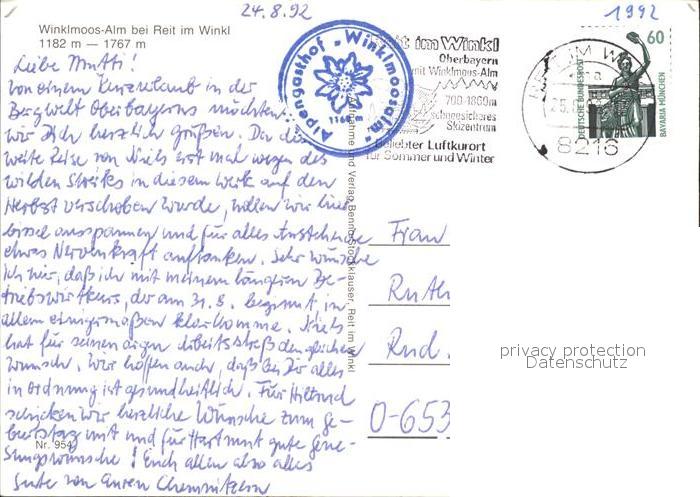 24.8.92
1992
Winklmoos-Alm bei Reit im Winkl
1182 m — 1767 m
Liebe Mutti!
Von einem Kurzurlaub in der
Bergwelt Oberbayerns möchten
wir Dich herzlich grüßen. Da die
weite Reise von Niels erst mal wegen des
wilden Streiks in diesem Werk auf den
Herbst verschoben wurde, wollen wir hier
bissel ausspannen und für alles Anstehende
etwas Nervenkraft auftanken. Sehr wünsche
ich mir, daß ich mit meinem längeren Be-
triebswirtkurs, der am 31.8. beginnt, in
allem einigermaßen klarkomme. Niels
hat für seinen argen Arbeitsstreß den gleichen
Wunsch. Wir hoffen auch, daß bei Dir alles
in Ordnung ist gesundheitlich. Für Hiltrud
schicken wir herzliche Wünsche zum Ge-
burtstag mit und für Hartmut gute Gene-
sungswünsche! Euch allen also alles
Gute von Euren Chemnitzern
Nr. 954
Alpengasthof "Winklmoosalm"
1160 m
Reit im Winkl
Oberbayern
mit Winklmoos-Alm
700-1860m
schneesicheres
Skizentrum
Beliebter Luftkurort
für Sommer und Winter
REIT IM WINKL
25.
8216
60
DEUTSCHE BUNDESPOST
BAVARIA MÜNCHEN
Aufnahme und Verlag Benno Stockklauser, Reit im Winkl
Frau
Ruth
Rud.
O-653
privacy protection
Datenschutz